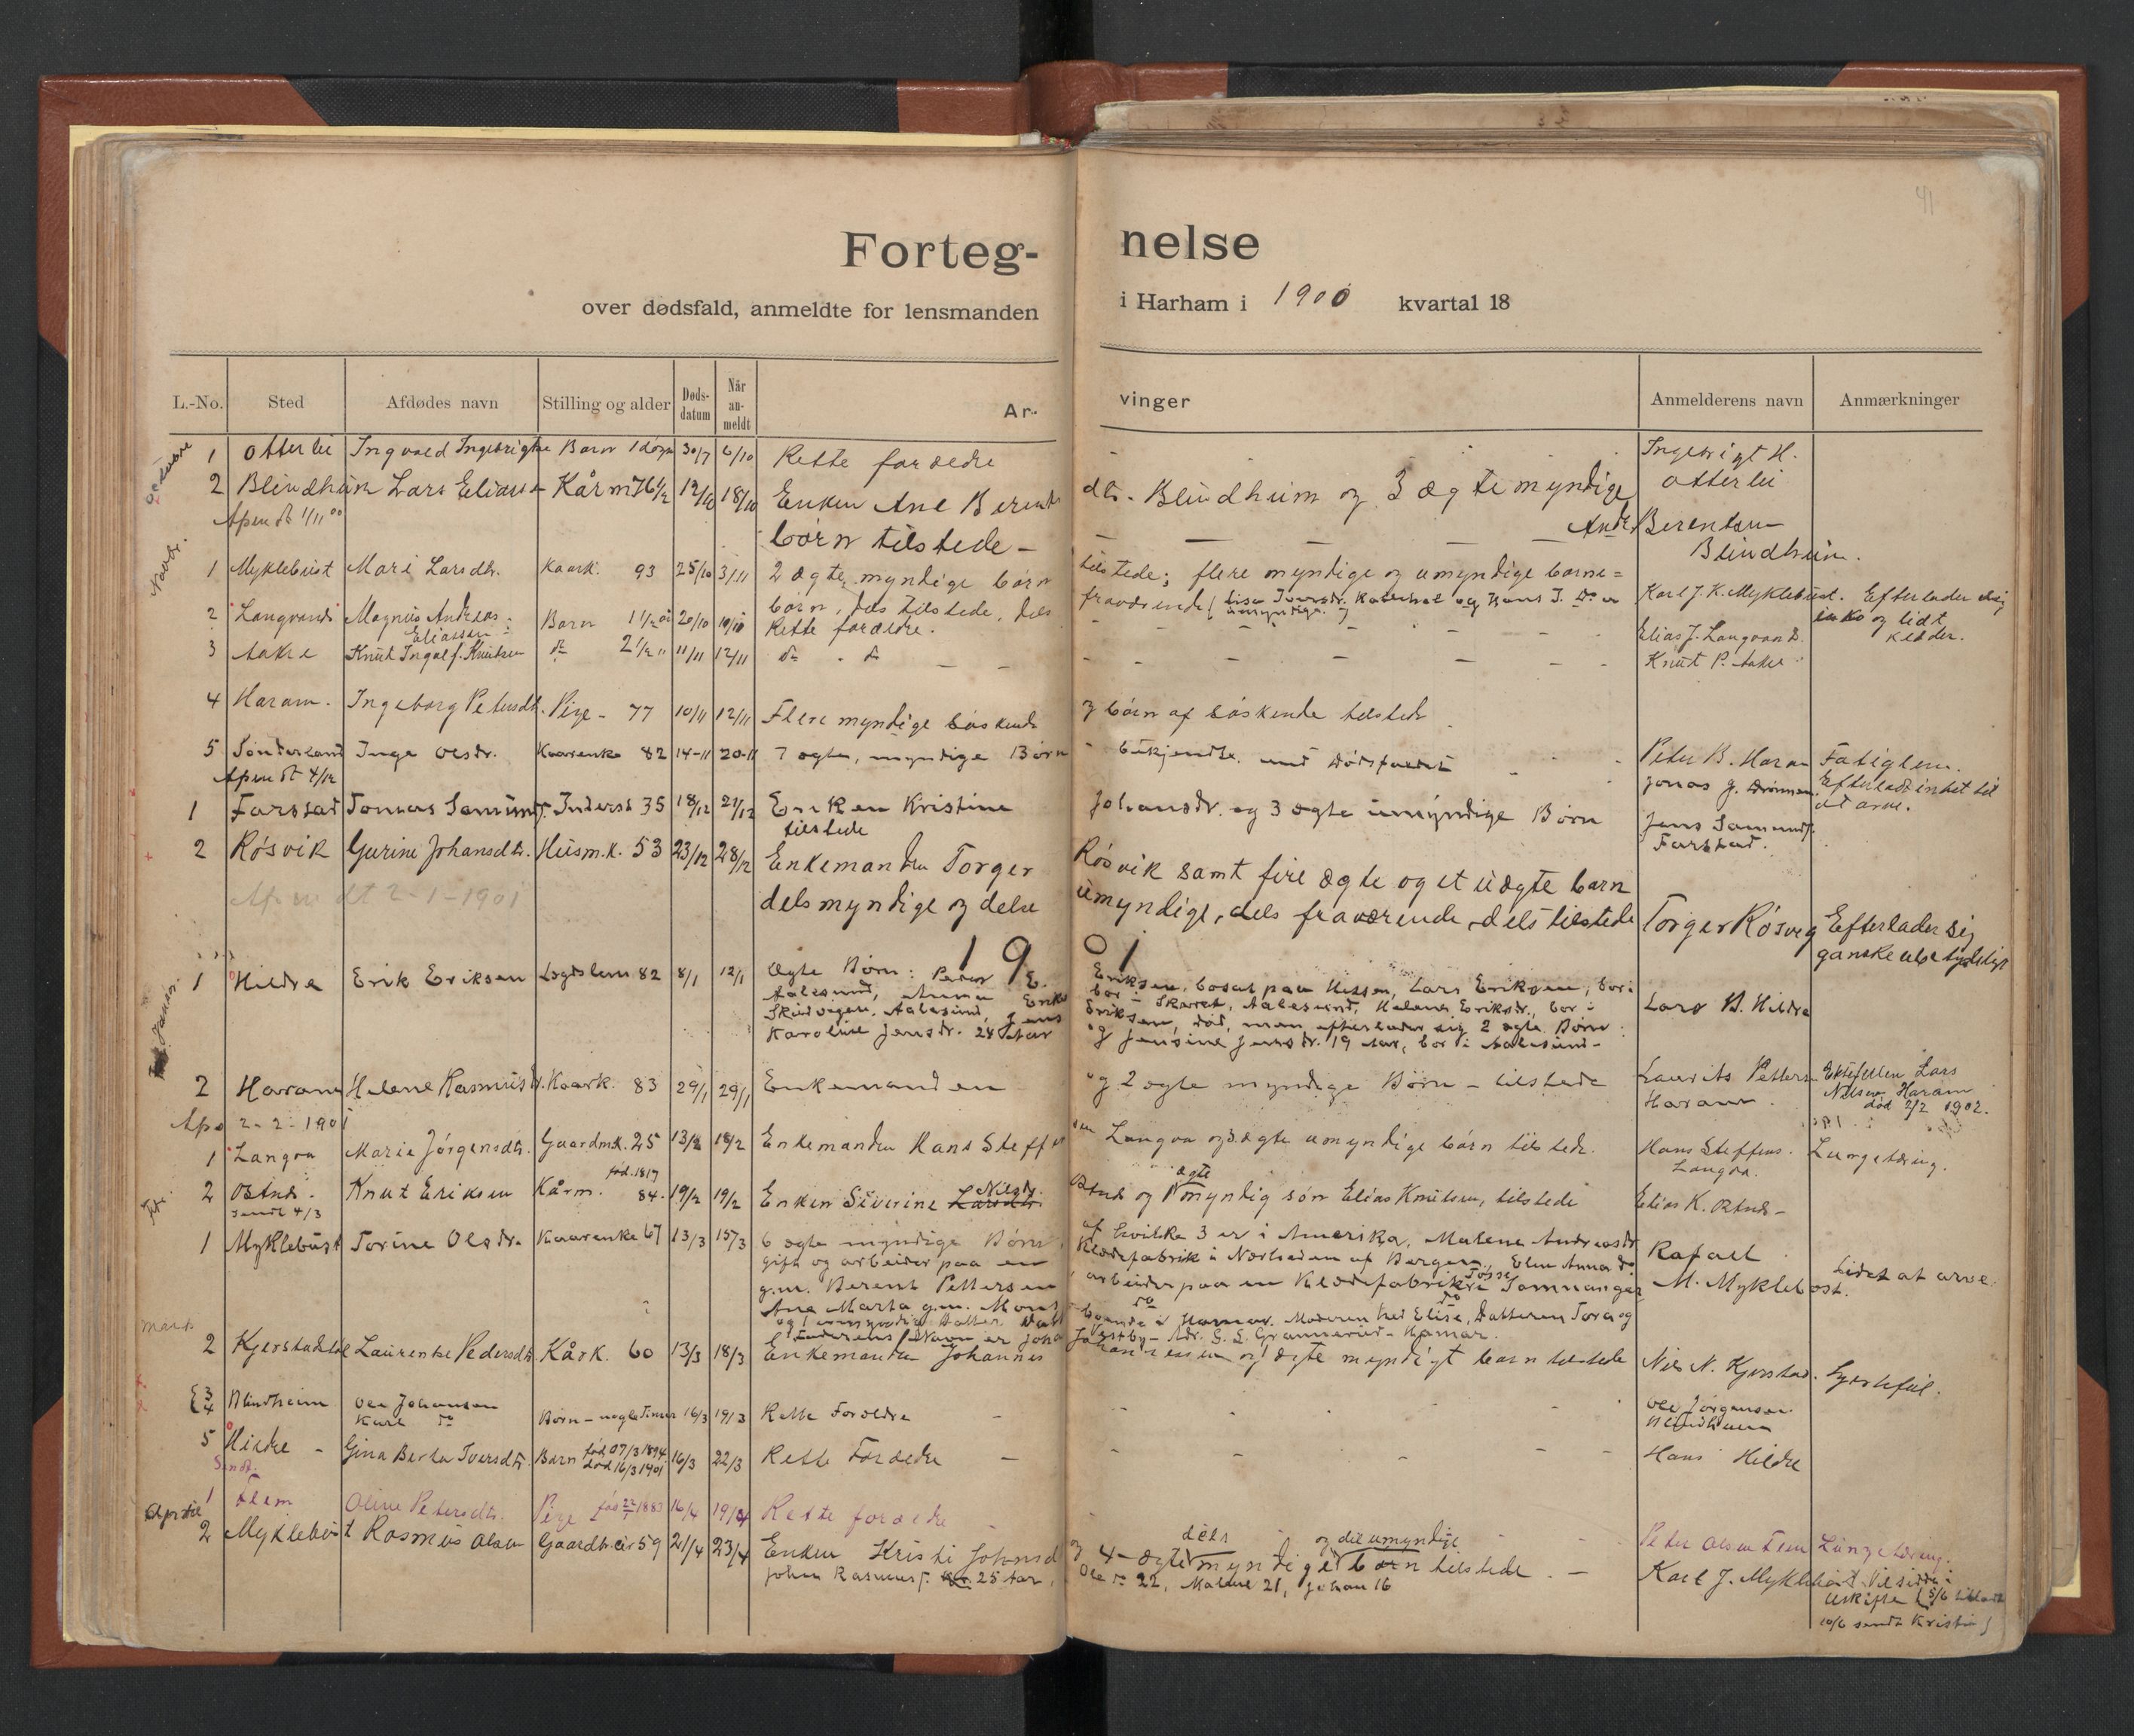 41
Forteg-nelse
over dødsfald, anmeldte for lensmanden i Harham i 1900 kvartal 18
L.-No. Sted Afdødes navn Stilling og alder Døds-datum Når an-meldt Ar-vinger Anmelderens navn Anmærkninger
1 Otterlei Ingvald Ingebrigtse Barn 1 døgn 30/7 6/10 Rette forældre Ingebrigt H. Otterlei
2 Blindheim Lars Eliass Kårm 76½ 12/10 18/10 Enken Ane Berents dtr. Blindheim og 3 ægte myndige
Apen dt 1/11 00 børn tilstede - Andr Berentsen Blindheim.
Novbr.
1 Myklebust Mari Larsdtr. Kaark. 93 25/10 3/11 2 ægte myndige børn tilstede; flere myndige og umyndige barne=
børn, dels tilstede, dels fraværende Karl J. K. Myklebust. Efterlader sig
og lidt klæder.
2 Langvand Magnus Andreas Eliassen Barn 1½ 20/10 Rette forældre. Elias J. Langvand.
3 Aakre Knut Ingolf Knutsen do 2½ " 11/11 12/11 do - do Knut P. Aakre
4 Haram. Ingeborg Petersdtr. Pige - 77 10/11 12/11 Flere myndige søskende og børn af søskende tilstede
Peter B. Haram Fatiglem.
5 Sønderland Inge Olsdr. Kaarenke 82 14-11 20-11 7 ægte, myndige Børn bekjendte med dødsfaldet Jonas J. Efterladt intet til at arve.
Apen dt 4/12
1 Farstad Tomas Samunds. Inderst 35 18/12 21/12 Enken Kristine Johansdr. og 3 ægte umyndige Børn Jens Samunds. Farstad.
tilstede
2 Røsvik Gurine Johansdtr. Husm.k. 53 23/12 28/12 Enkemanden Torger Røsvik samt fire ægte og et uægte barn
Apen dt 2-1-1901 dels myndige og dels umyndige, dels fraværende, dels tilstede Torger Røsvig Efterlader sig ganske ubetydeligt
1901
Januar.
1 Hildre Erik Eriksen Lægdslem 82 8/1 12/1 Ægte Børn: Peder E. Eriksen, bosat paa Hessen, Lars Eriksen, bor i
Aalesund, Anna Eriks bor i Skarret, Aalesund, Helene Eriksdr., bor i
Skudvigen, Aalesund, Jens Eriksen, død, men efterlader sig 2 ægte Børn:
Karoline Jensdr. 28 Aar og Jensine Jensdr. 19 Aar, bor i Aalesund - Lars B. Hildre
2 Haram Helene Rasmusdr. Kaark. 83 29/1 29/1 Enkemanden og 2 ægte myndige Børn - tilstede Laurits Petters Haram. Ektefellen Lars Nilsen Haram død 2/2 1902.
Apn 2-2-1901
1 Langva Marie Jørgensdtr. Gaardmk. 25 13/2 18/2 Enkemanden Hans Steffensen Langva og 3 ægte umyndige børn tilstede. Hans Steffens. Langva. Lungetæring.
2 Østnes. Knut Eriksen Kårm. fød. 1817 84. 19/2 19/2 Enken Siverine Nilsdr. Østnes og ægte myndig søn Elias Knutsen, tilstede Elias K. Østnes -
sendt 4/3
1 Myklebust Torine Olsdr. Kaarenke 67 13/3 15/3 6 ægte myndige Børn, af hvilke 3 er i Amerika, Malene Andreasdr
gift og arbeider paa en Klædefabrik i Nærheden af Bergen, Elen Anna do
g.m. Berent Pettersen arbeider paa en Klædefabrik i Samnanger Rafael M. Myklebost. Lidet at arve.
Ane Marta g.m. Mons
boende i Hamar. Moderen hed Elise, Datteren Tora og
Navn er Joha Vestby - Adr. G. E. Grønnerud - Hamar.
Marts
2 Kjerstadlid Laurentse Pedersdtr. Kårk. 60 13/3 18/3 Enkemanden Johannes Johannessen og 1 ægte myndigt barn tilstede Nils N. Kjerstad.
3 4 Blindheim Ole Johansen Karl do Børn - nogle Timer 16/3 19/3 Rette Forældre - Ole Jørgensen Blindheim
5 Hildre - Gina Berta Iversdtr. Barn født 07/3 1894 død 16/3 1901 16/3 22/3 Rette Forældre - Hans Hildre
Sendt.
April
1 Flem Oline Petersdtr. Pige 1883 16/4 19/4 Rette forældre Peter Olsen Flem Lungetæring.
2 Myklebust Rasmus Olsen Gaardbr 59 21/4 23/4 Enken Kristi Johansd og 4 ægte dels myndige og dels umyndige børn tilstede. - Karl J. Myklebust Vil sidde i uskifte
Johan Rasmuss. 25 Aar, Ole do 22, Malene 21, Johan 16
10/6 sendt Kristi